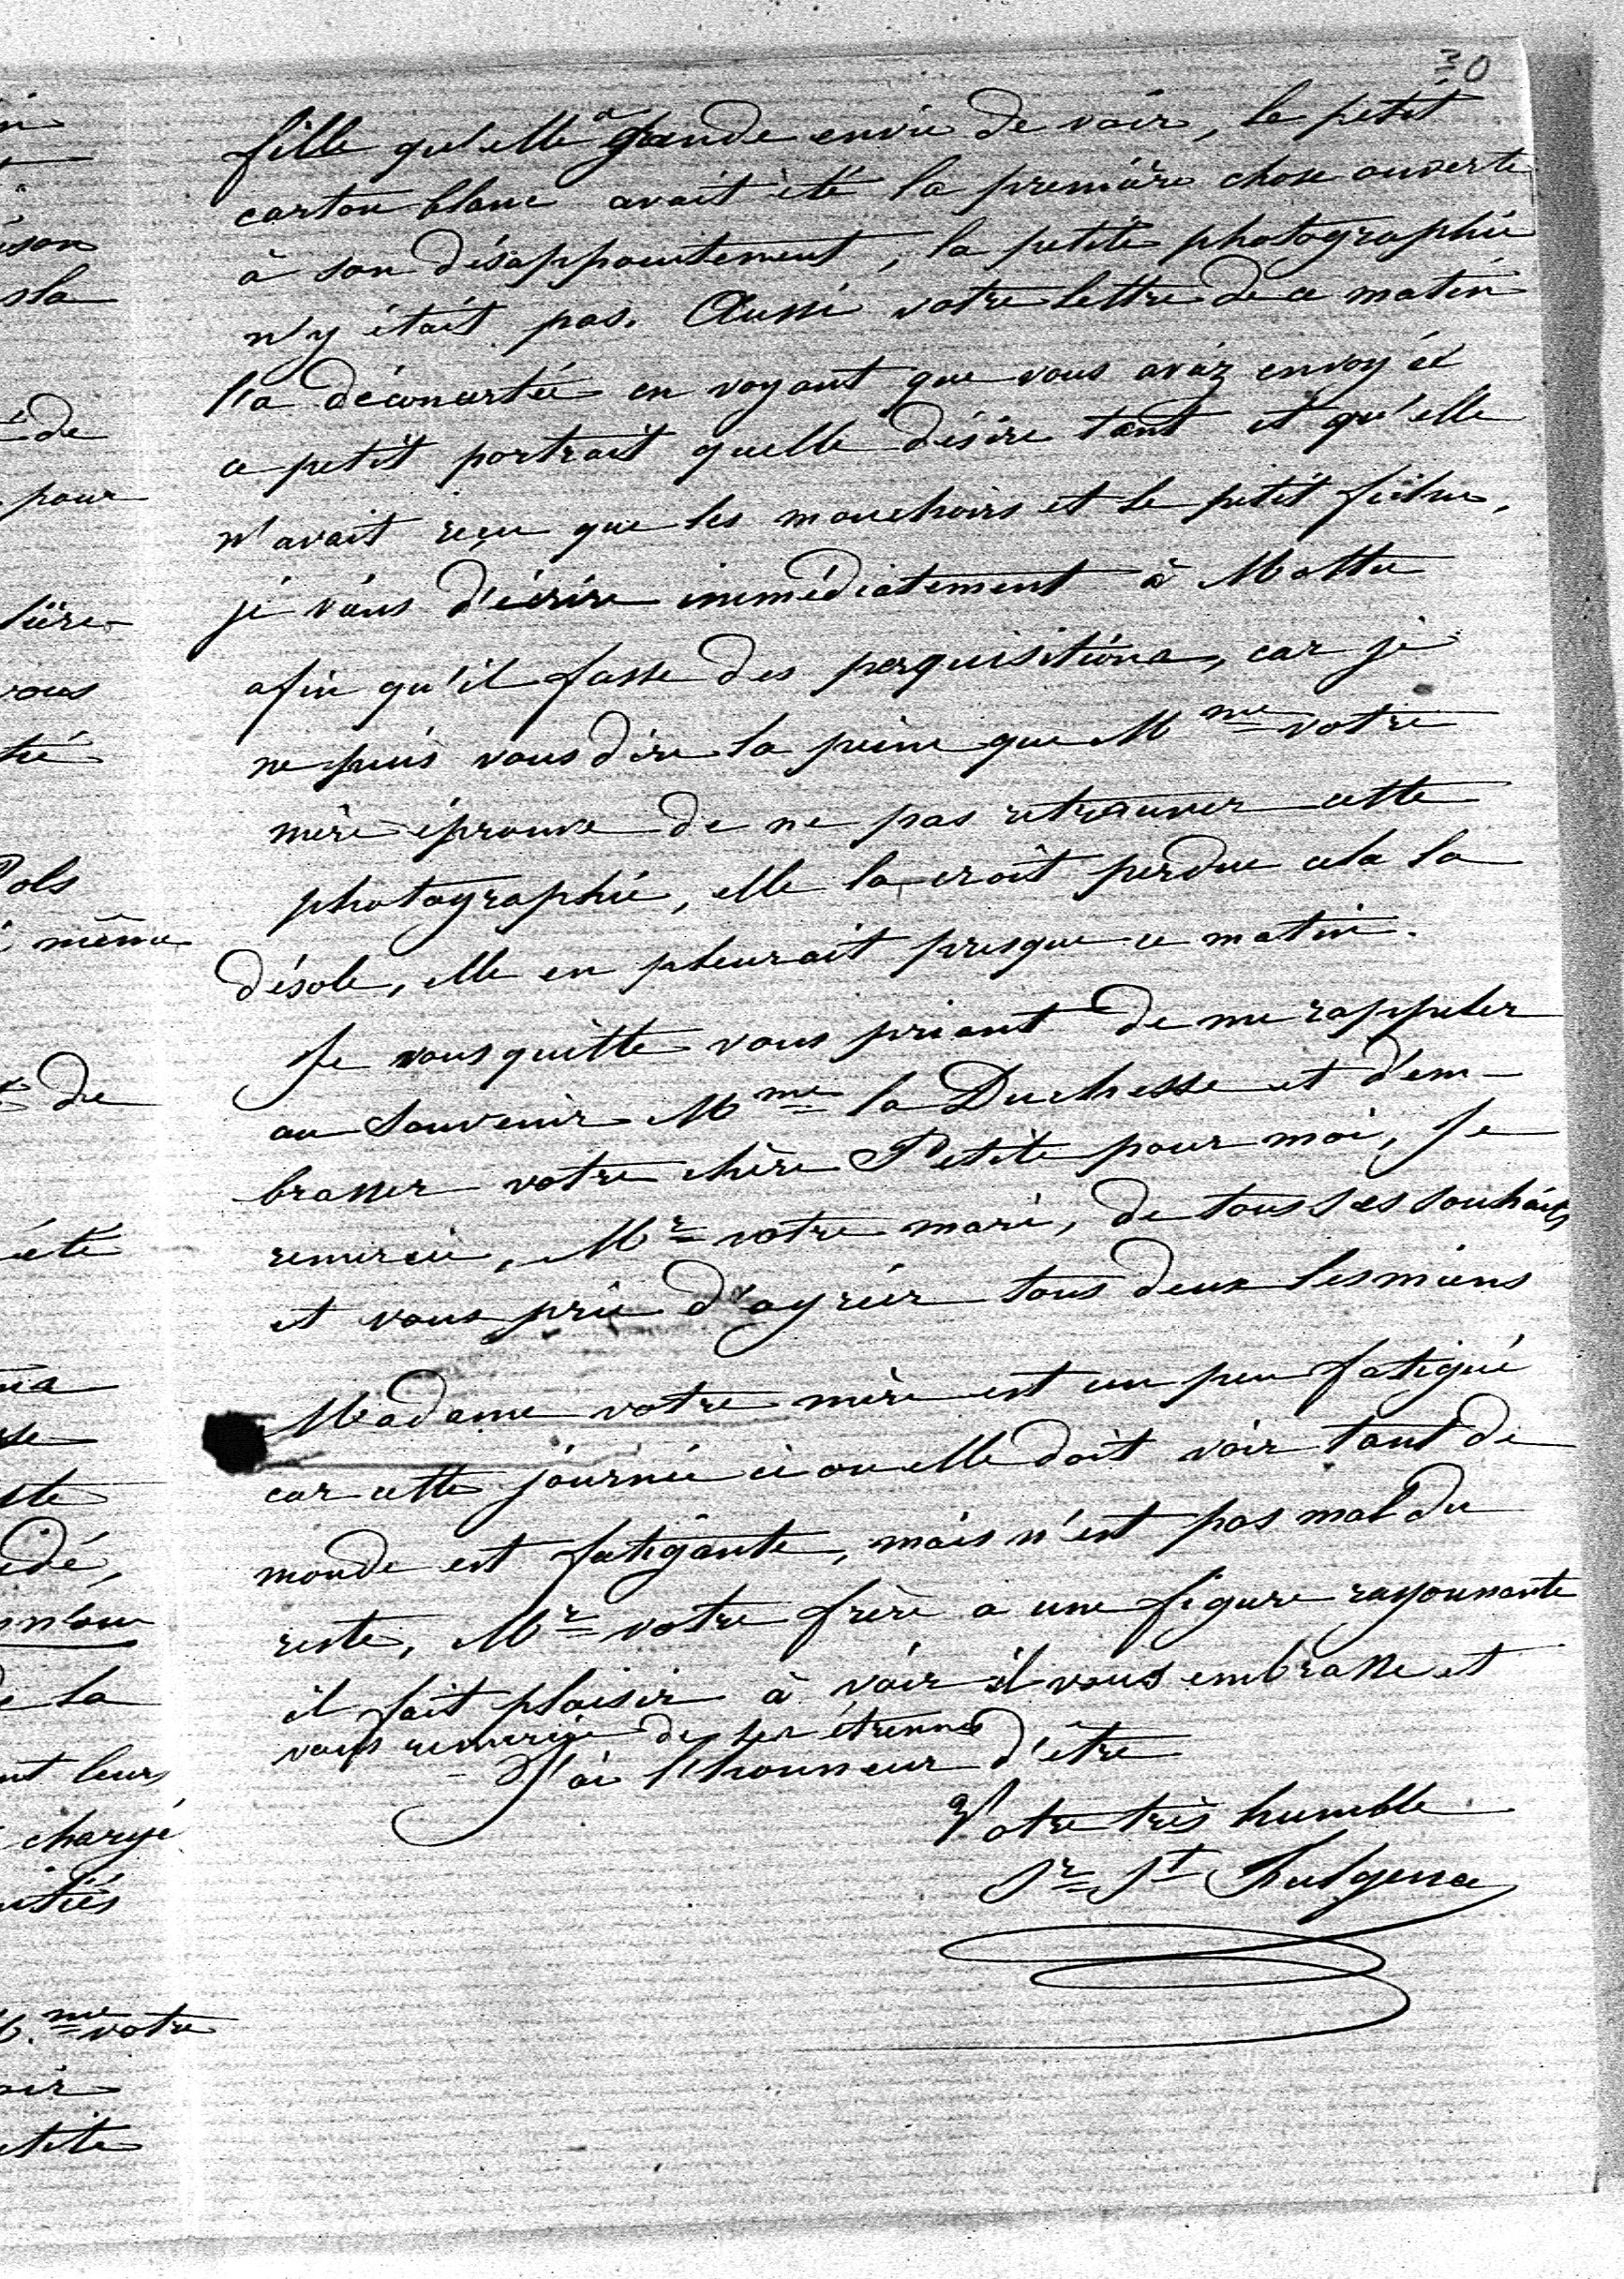 30
fille qu'elle a grande envie de voir, le petit
carton blanc avait été la première chose ouverte
à son désappointement, la petite photographie
n'y était pas. Aussi votre lettre de ce matin
l'a déconcertée en voyant que vous aviéz envoyé
ce petit portrait quelle désire tant et qu'elle
n'avait reçu que les mouchoirs et le petit
je viens d'écrire immédiatement à Mottu
afin qu'il fasse des perquisitions, car je
ne puis vous dire la peine que Mme votre
mère éprouve de ne pas retrouver cette
photographie, elle la croit perdue cela la
désole, elle en pleurait presque ce matin.
Je vous quitte vous priant de me rappeler
au souvenir Mme la Duchesse et d'em-
brasser votre chère Petite pour moi, Je
remercie, Mr votre mari, de tous ses souhaits
et vous prie d'agréér tous deux les miens
Madame votre mère est un peu fatigué
car cette journée ci ou elle doit voir tant de
monde est fatigante, mais n'est pas mal du
reste, Mr votre frère a une figure rayonnante
il fait plaisir à voir il vous embrasse et
vous remercie de ses étrennes
J'ai l'honneur d'être
Votre très humble
Sr St Fulgence
ison
sla
de
pour
vous
même
de
été
de la
nt leurs
chargé
me votre